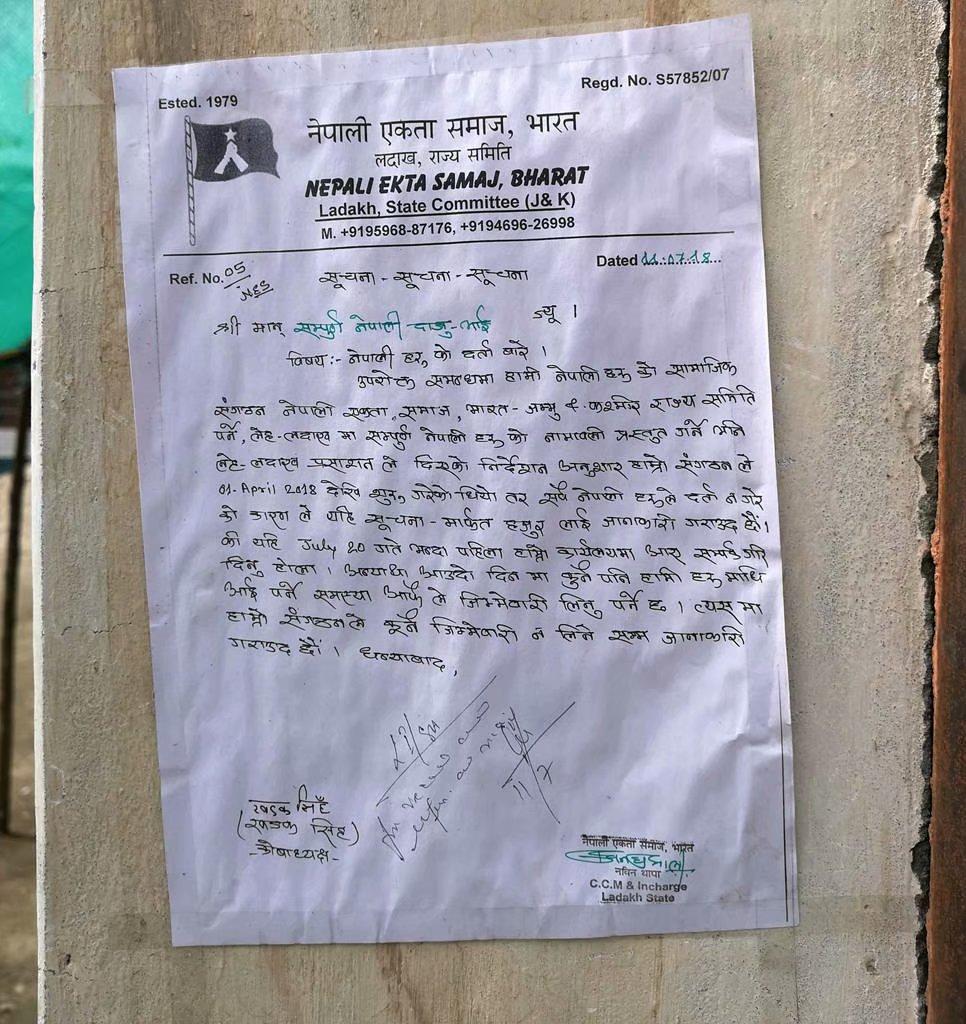 Ested. 1979
Regd. No. S57852/07
नेपाली एकता समाज, भारत
लदाख, राज्य समिति
NEPALI EKTA SAMAJ, BHARAT
Ladakh, State Committee (J& K)
M. +9195968-87176, +9194696-26998
Ref. No. 05/NES
Dated 11.07.18
सूचना - सूचना - सूचना
श्री मान् सम्पुर्ण नेपाली दाजु-भाई ज्यू ।
विषय :- नेपाली हरु को दर्ता बारे ।
उपरोक्त सम्बन्धमा हामी नेपाली हरु को सामाजिक
संगठन नेपाली एकता, समाज, भारत - जम्मु & कश्मिर राज्य समिति
पर्ने, लेह-लदाख मा सम्पुर्ण नेपाली हरु को नामावली प्रस्तुत गर्ने भनि
लेह-लदाख प्रसाशन ले दिएको निर्देशन अनुशार हाम्रो संगठन ले
01-April 2018 देखि शुरु गरेको थियो तर सबै नेपाली हरुले दर्ता न गरे
को कारण ले यहि सूचना - मार्फत हजुर लाई जानकारी गराउद छौं।
की यहि July 20 गते भन्दा पहिला हाम्रो कार्यलयमा आए सम्पर्क गरि
दिनु होला । अन्यथा आउदो दिन मा कुनै पनि हामी हरु माथि
आई पर्ने समस्या आफै ले जिम्मेवारी लिनु पर्ने छ । त्यस मा
हाम्रो संगठनले कुनै जिम्मेवारी न लिने सम्म जानाकारी
गराउद छौं । धन्यावाद,
11/7
खडक सिंह
(खडक सिंह)
नेपाली एकता समाज, भारत
नविन थापा
C.C.M & Incharge
Ladakh State